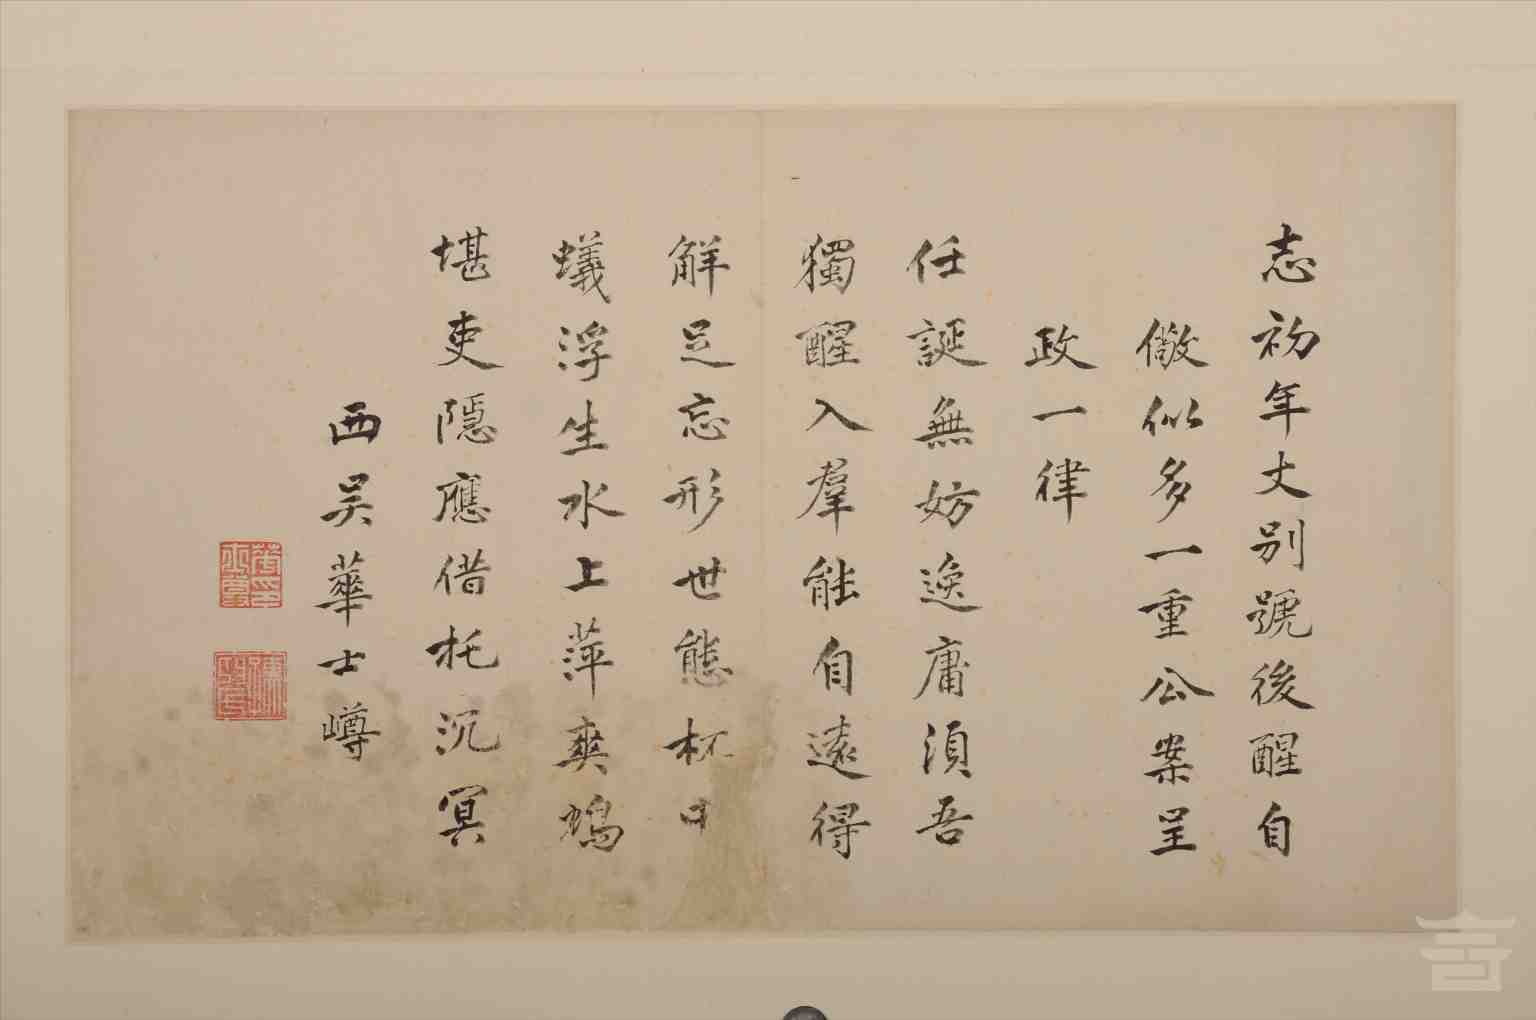 志初年丈別號後醒自
儆似多一重公案呈
政一律
任誕無妨逸庸須吾
獨醒入羣能自遠得
解足忘形世態杯中
蟻浮生水上萍爽鳩
堪吏隱應借托沉冥
西吴華士𡼲